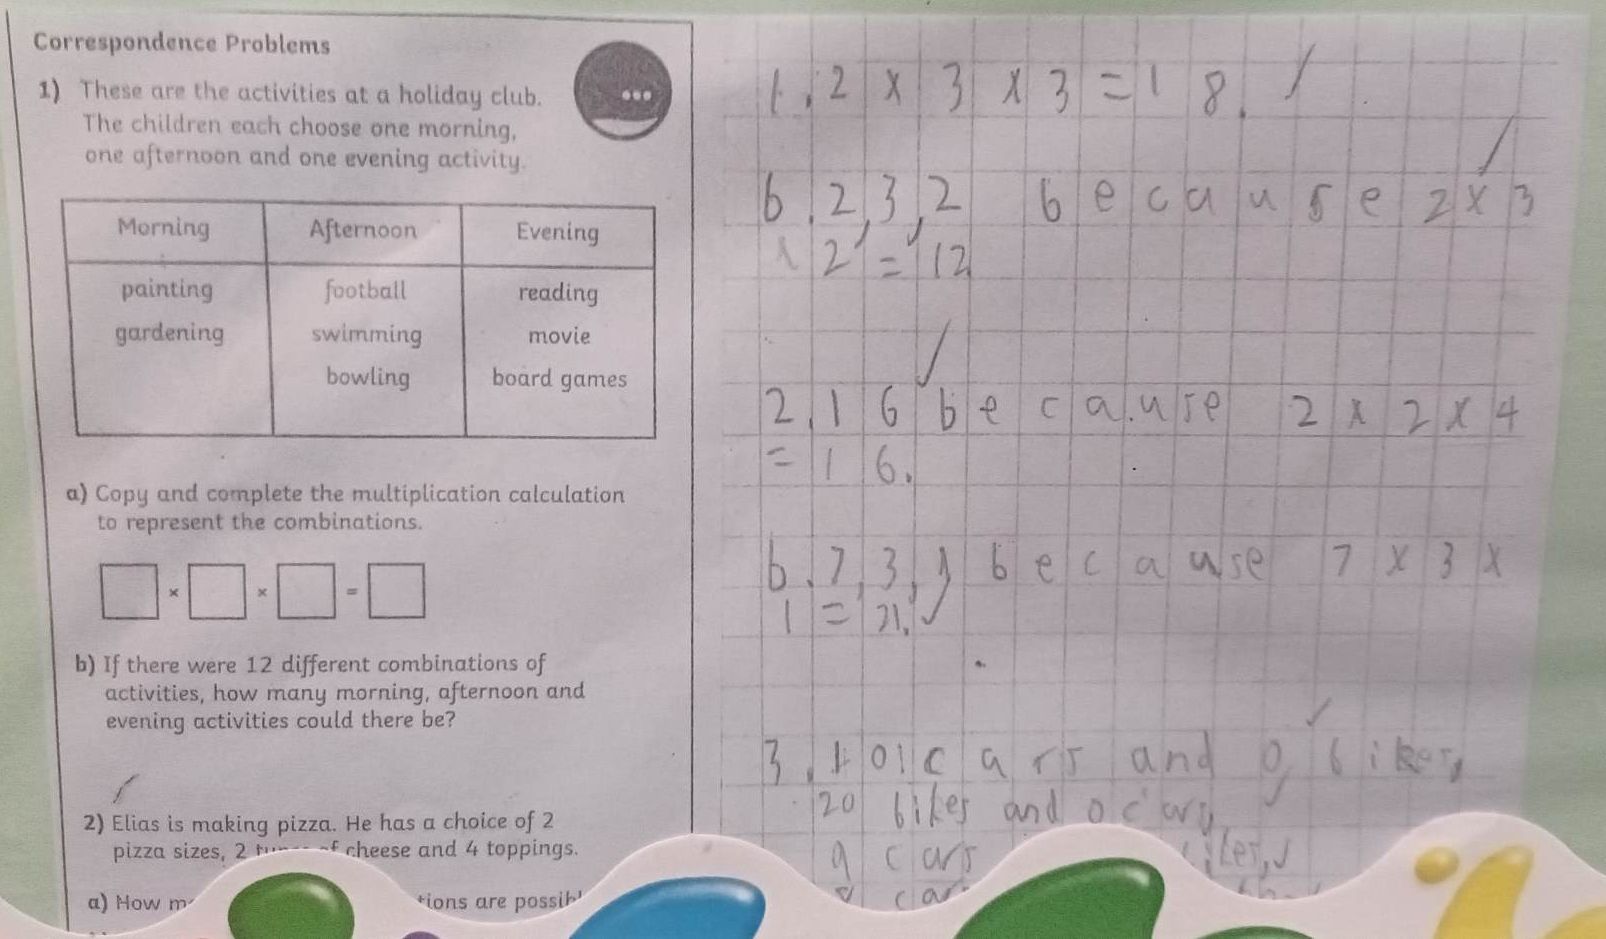 Correspondence Problems
1) These are the activities at a holiday club.
The children each choose one morning,
one afternoon and one evening activity.
Morning Afternoon Evening
painting football reading
gardening swimming movie
bowling board games
a) Copy and complete the multiplication calculation
to represent the combinations.
× × =
b) If there were 12 different combinations of
activities, how many morning, afternoon and
evening activities could there be?
2) Elias is making pizza. He has a choice of 2
pizza sizes, 2 of cheese and 4 toppings.
a) How are
1. 2 x 3 x 3 = 18.
b. 2, 3, 2 because 2 x 3
x 2 = 12
2. 16 because 2 x 2 x 4
= 16.
b. 7, 3, 1 because 7 x 3 x
1 = 21.
3. cars and 0 bikes,
20 bikes and 0 cars
9 cars